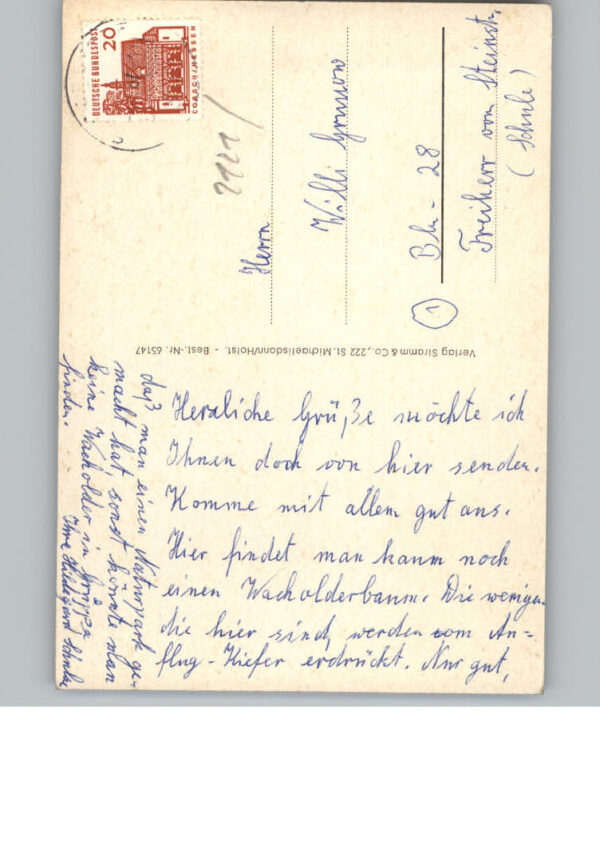 DEUTSCHE BUNDESPOST
20
LORSCH/HESSEN
2121/
Herrn
Willi Grassow
1
Bln - 28
Freiherr vom Steinstr.
(Schule)
Verlag Stramm & Co., 222 St. Michaelisdonn/Holst. - Best.-Nr. 65147
Herzliche Grüße möchte ich
Ihnen doch von hier senden.
Komme mit allem gut aus.
Hier findet man kaum noch
einen Wacholderbaum. Die wenigen
die hier sind, werden vom An-
flug-Kiefer erdrückt. Nur gut,
daß man einen Naturpark ge-
macht hat sonst könnte man
keine Wacholder
finden.
Ihre Hildegard